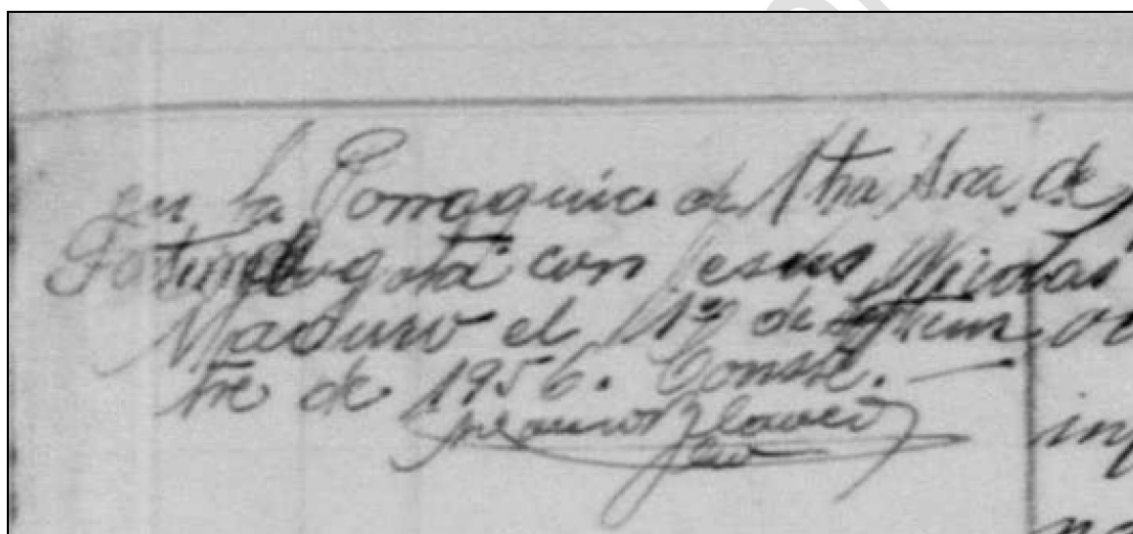 en la Parroquia de Ntra Sra. de
Fatima Bogotá con Jesus Nicolas
Maduro el 1º de Septiem
bre de 1956. Conste.